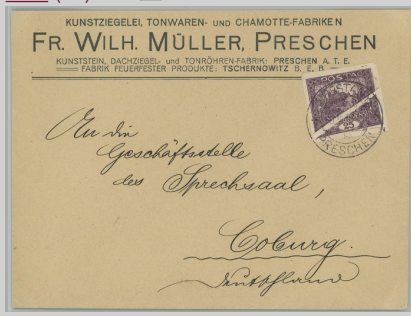 KUNSTZIEGELEI, TONWAREN- UND CHAMOTTE-FABRIKEN
FR. WILH. MÜLLER, PRESCHEN
KUNSTSTEIN, DACHZIEGEL- UND TONRÖHREN-FABRIK: PRESCHEN A. T. E.
FABRIK FEUERFESTER PRODUKTE: TSCHERNOWITZ B. E. B.
POŠTA
PRESCHEN
25
An die
Geschäftsstelle
des Sprechsaal,
Coburg.
Deutschland